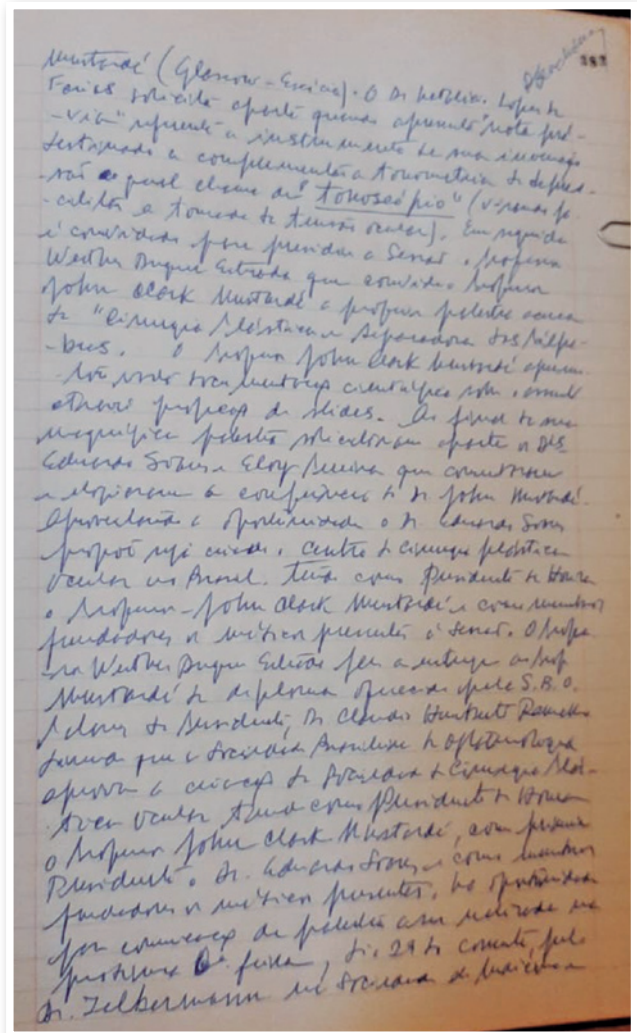 Mustardé (Glasgow - Escócia). O Dr Lopes de
Farias solicita aparte quando apresenta "nota pré-
-via" referente a instrumento de sua invenção
destinado a complementar a tonometria de
o qual chama de "tonoscópio" (visando fa-
cilitar a tomada da tensão ocular). Em seguida
é convidado para presidir a Sessão o Professor
Werther Duque Estrada que convida o Professor
John Clark Mustardé a proferir palestra acerca
de "Cirurgia Plástica e Reparadora das Pálpe-
-bras. O Professor John Clark Mustardé apresen-
-tou documentação científica sobre o assunto
através projeção de slides. Ao final de sua
magnífica palestra solicitaram aparte os Drs
Eduardo Soares e Eloy Pereira que comentaram
e elogiaram a conferência do Dr John Mustardé.
Aproveitando a oportunidade o Dr. Eduardo Soares
propôs seja criado o Centro de Cirurgia plástica
ocular no Brasil. Tendo como Presidente de Honra
o Professor - John Clark Mustardé e como membros
fundadores os médicos presentes à Sessão. O Profes-
sor Werther Duque Estrada fez a entrega ao Prof
Mustardé do diploma oferecido pela S.B.O.
Presidente, Dr Claudio Humberto
que a Sociedade Brasileira de Oftalmologia
aprova a criação da Sociedade de Cirurgia Plás-
-tica Ocular tendo como Presidente de Honra
o Professor John Clark Mustardé, como primeiro
Presidente o Dr. Eduardo Soares e como membros
fundadores os médicos presentes. Na oportunidade
comunicação da palestra a ser realizada na
próxima 6ª feira, dia 29 do corrente, pelo
Dr. Zelbermann na Sociedade de Medicina e